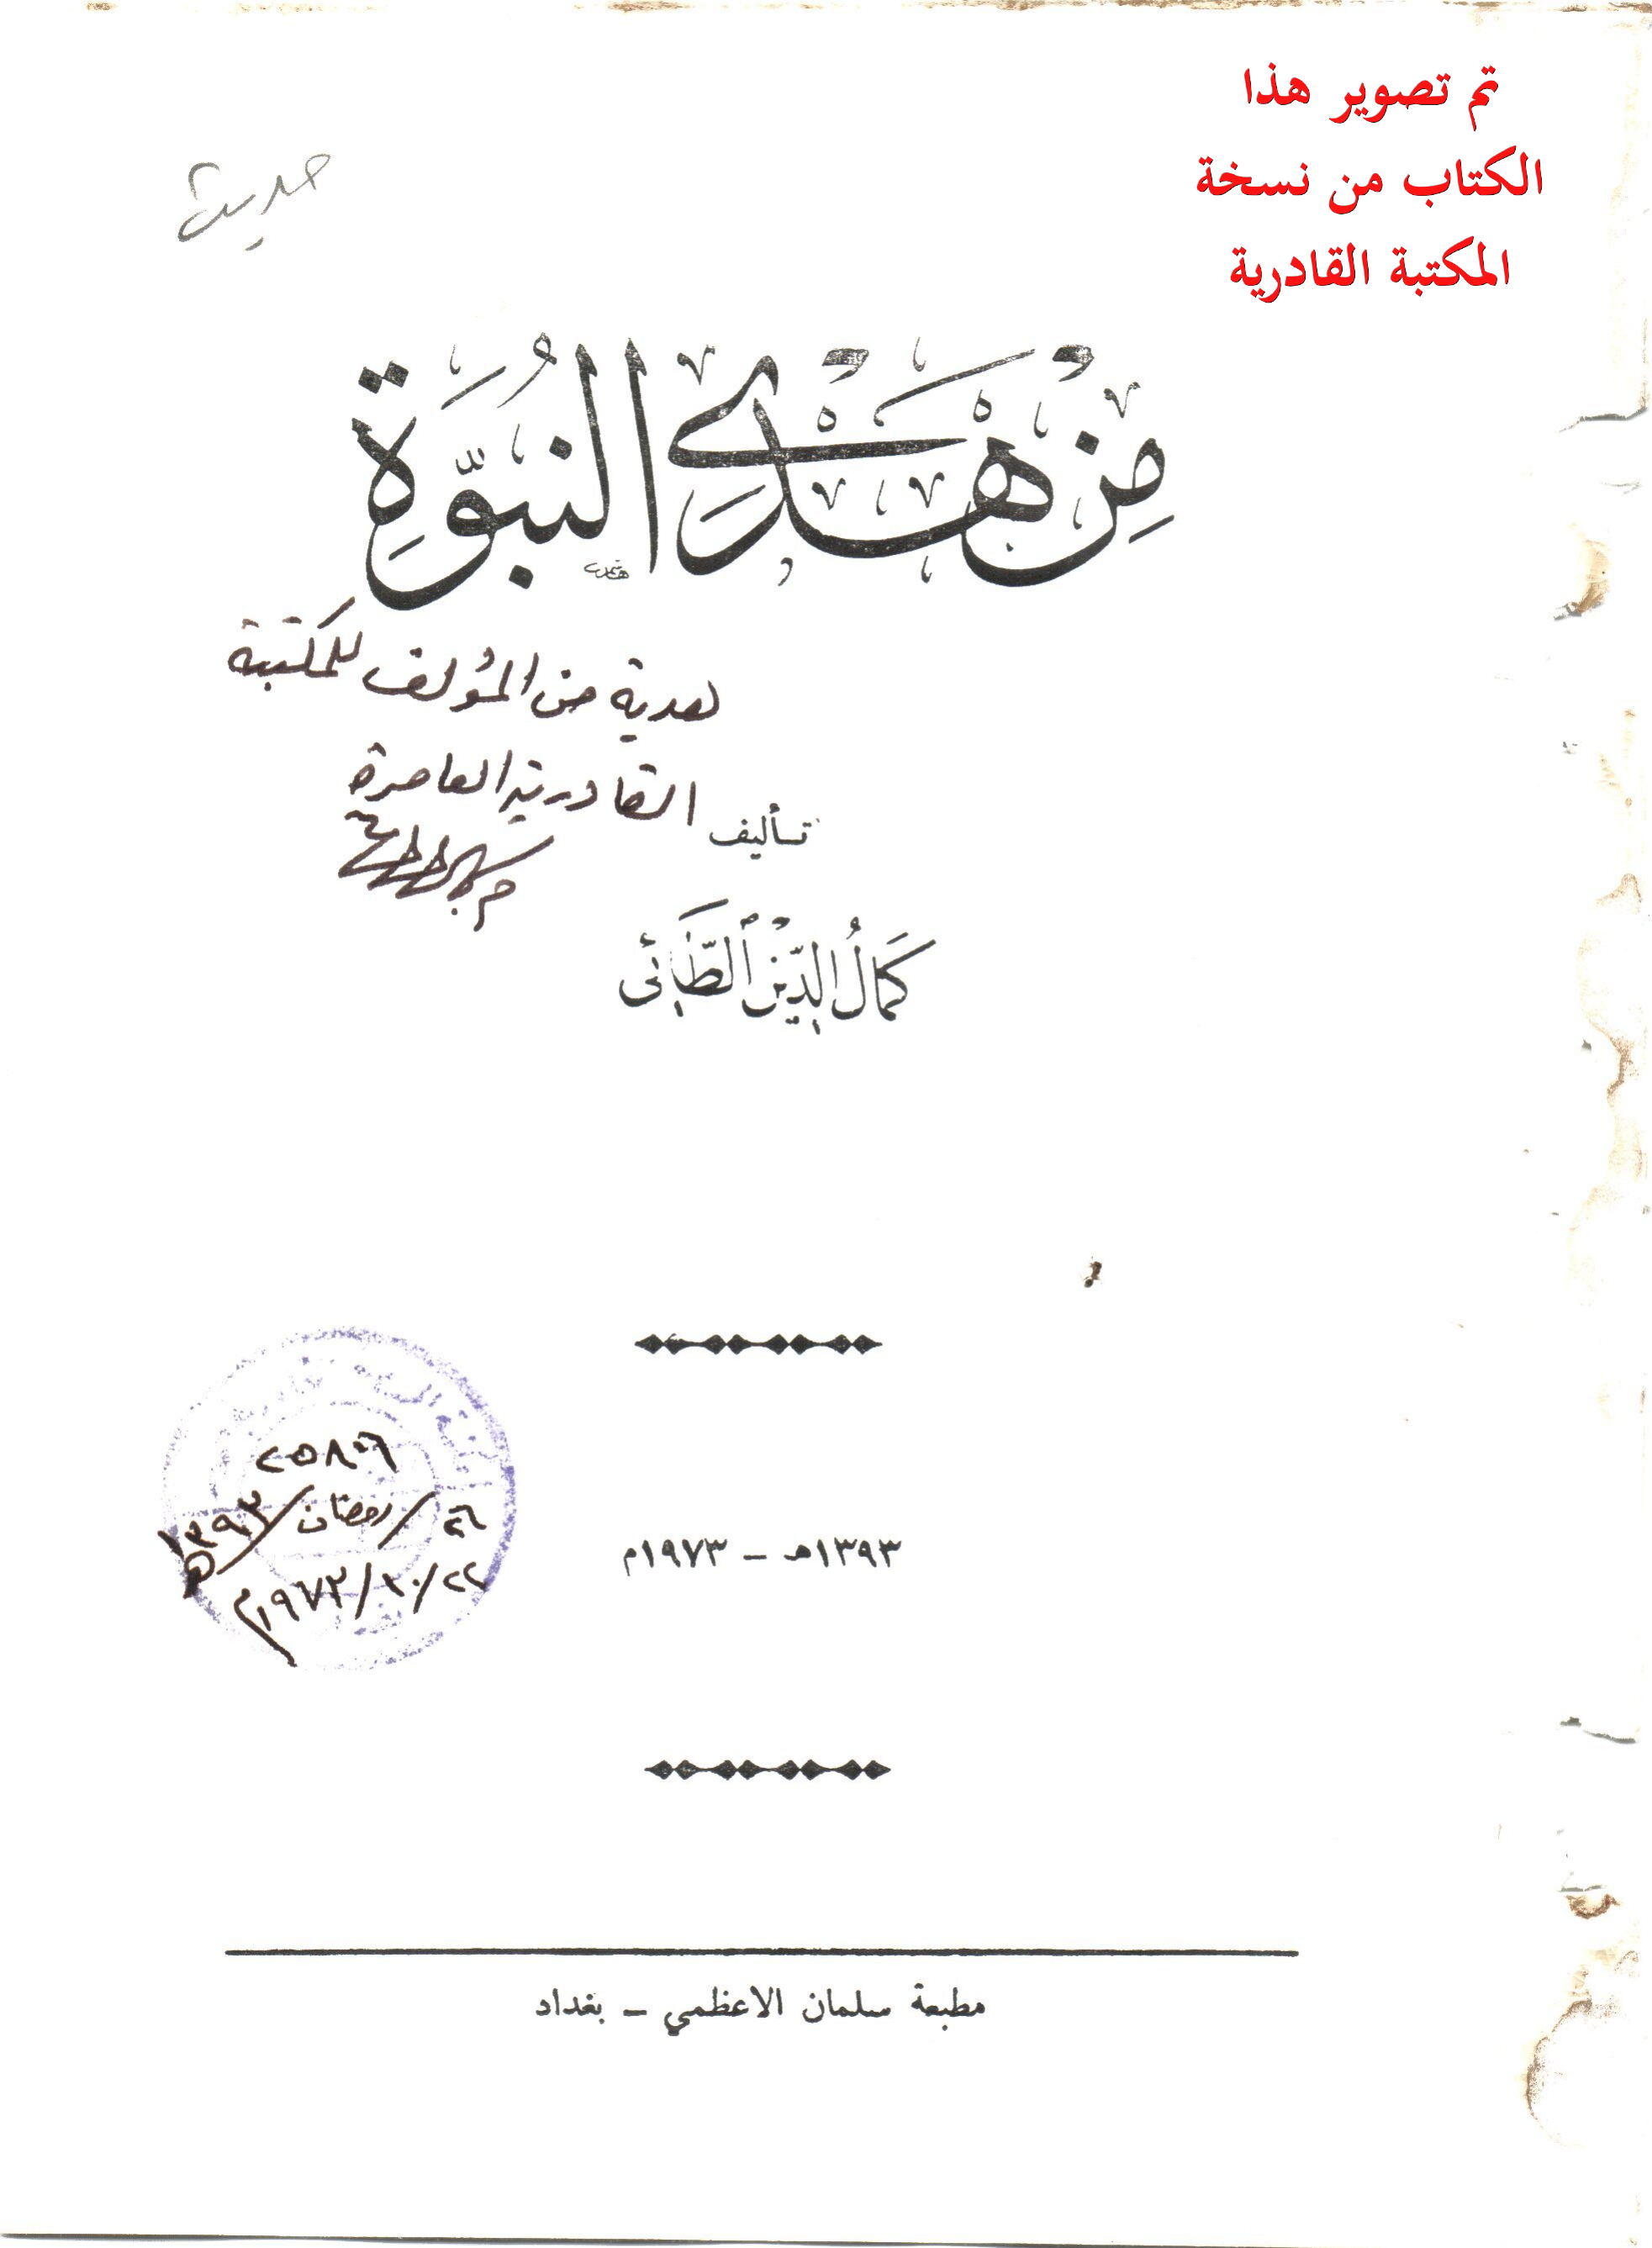 تم تصوير هذا
الكتاب من نسخة
المكتبة القادرية
حديث
مِنْ هَدْيِ النُبُوَّةِ
هاشم
هدية من المؤلف للمكتبة
القادرية العامرة
تأليف
كَمَالُ الدِّيْنِ الطَّائِي
٢٥٨٠٦
٢٦/رمضان/١٣٩٣هـ
٢٢/١٠/١٩٧٣م
١٣٩٣هـ – ١٩٧٣م
مطبعة سلمان الاعظمي – بغداد